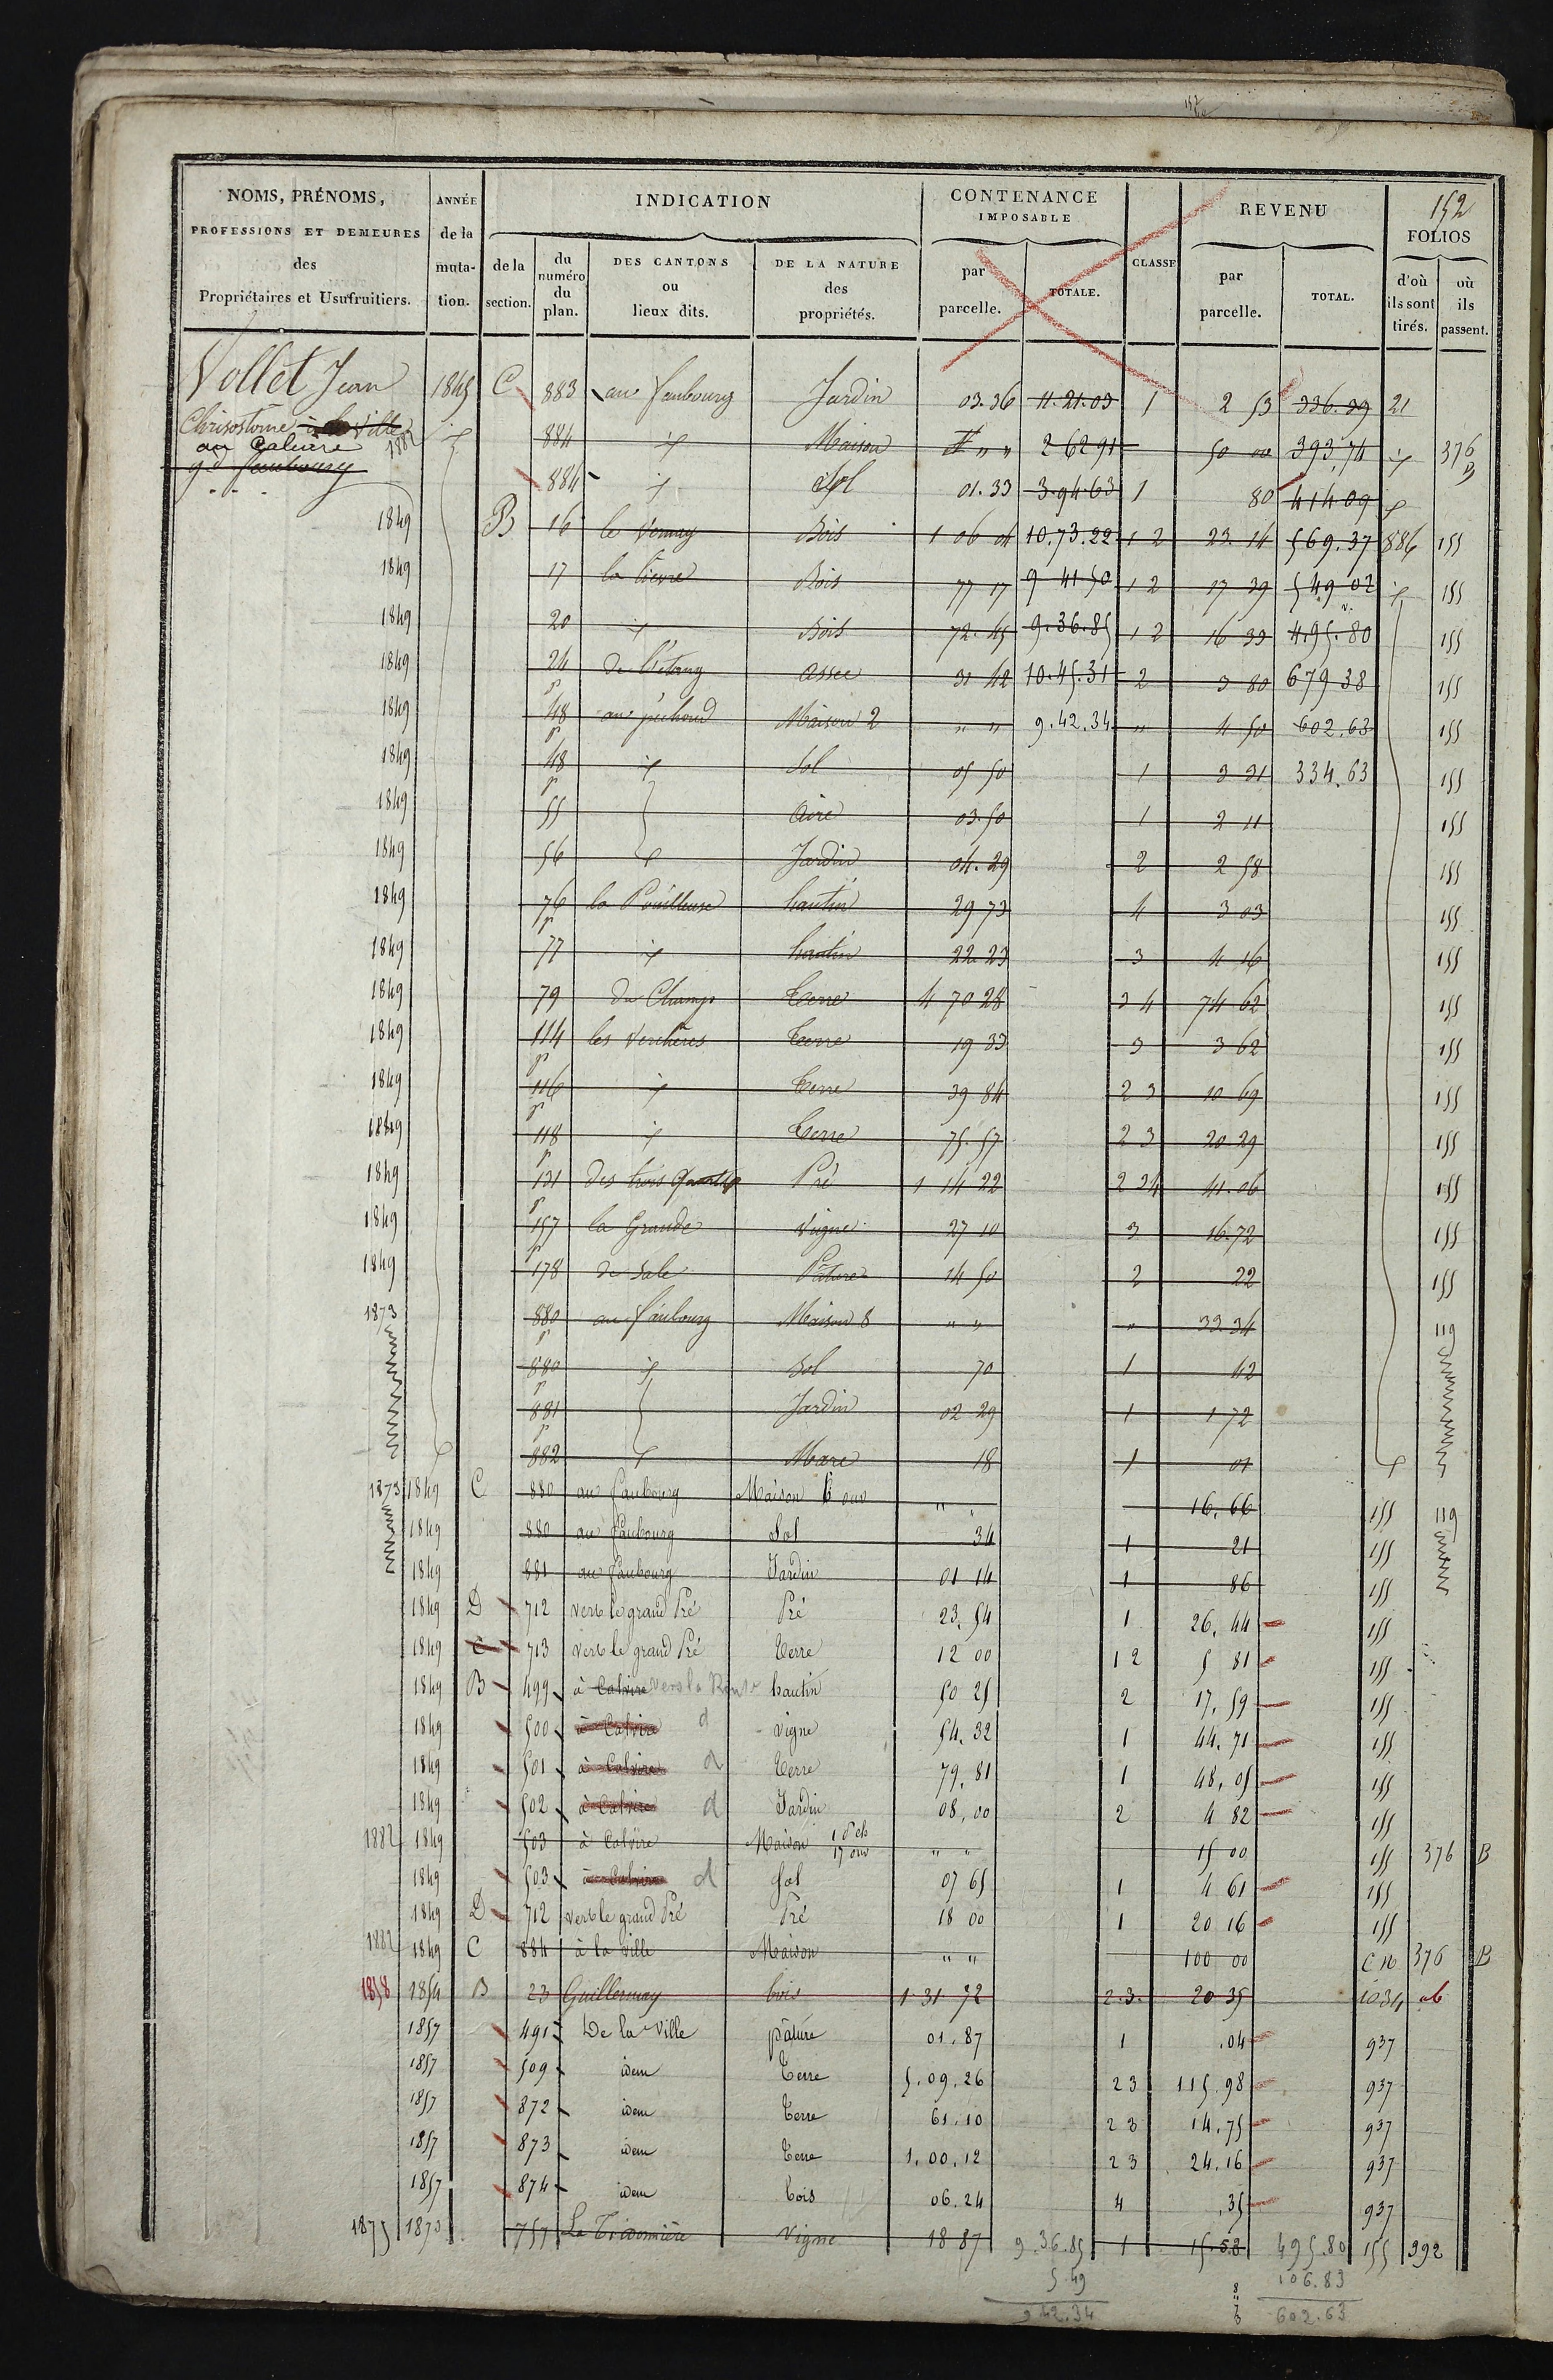 152
NOMS, PRÉNOMS, PROFESSIONS ET DEMEURES des Propriétaires et Usufruitiers.
ANNÉE de la muta- tion.
INDICATION
de la section.
du numéro du plan.
DES CANTONS ou lieux dits.
DE LA NATURE des propriétés.
CONTENANCE IMPOSABLE
par parcelle.
TOTALE.
CLASSE
REVENU
par parcelle.
TOTAL.
FOLIOS
d'où ils sont tirés.
où ils passent.
Vollet Jean
Chrisostôme à la Ville
au Calvire
gd faubourg
1845 C 883 au faubourg Jardin 03.36 11.21.03 1 2 53 336.39 21
1882 884 Maison " " 2 62 91 50 00 393,74 376 B
884 Sol 01.33 3.94 63 1 80 414 09
1849 B 16 le Vernay Bois 1 06 04 10.73.22 1 2 23.14 569.37 886 155
1849 17 la lièvre Bois 77 17 9 41 50 1 2 17 39 549 02 155
1849 20 Bois 72.45 9.36.85 1 2 16 33 495.80 155
1849 24 de l'étang assec 31 42 10.45.31 2 3 80 679 38 155
1849 48 p au pichoud Maison 2 " " 9.42.34 " 4 50 602.63 155
1849 48 p Sol 05 50 1 3 31 334.63 155
1849 55 aire 03.50 1 2 11 155
1849 56 Jardin 04.29 2 2 58 155
1849 76 p la Pouilleuse hautin 29 73 4 3 03 155
1849 77 hautin 22 23 3 4 16 155
1849 79 du Champ Terre 4 70 28 3 4 74 62 155
1849 114 p les Verchères Terre 19 33 3 3 62 155
1849 116 p Terre 39 84 2 3 10 69 155
1849 118 p Terre 75.57 2 3 20 29 155
1849 131 p des trois Pré 1 14 22 2 3 4 41.06 155
1849 157 p la Grande Vigne 27 10 3 16.72 155
1849 178 de Sale Pature 14 50 2 22 155
1873 880 p au faubourg Maison 8 " " " 33 34 119
880 p Sol 70 1 42
881 p Jardin 02 29 1 1 72
882 Mare 18 1 01
1873 1849 C 880 au faubourg Maison 6 ouv " " 16.66 155 119
1849 880 au faubourg Sol 34 1 21 155
1849 881 au faubourg Jardin 01 14 1 86 155
1849 D 712 vers le grand Pré Pré 23.54 1 26.44 155
1849 C 713 vers le grand Pré Terre 12 00 1 2 5 81 155
1849 B 499 à Calvire vers la Route hautin 50 25 2 17.59 155
1849 500 à Calvire d vigne 54.32 1 44.71 155
1849 501 à Calvire d Terre 79.81 1 48.05 155
1849 502 à Calvire d Jardin 08,00 2 4 82 155
1882 1849 503 à Calvire Maison 17 ouv " " 15 00 155 376 B
1849 503 à Calvire d Sol 07 65 1 4 61 155
1849 D 712 vers le grand Pré Pré 18 00 1 20 16 155
1882 1849 C 884 à la ville Maison " " 100 00 C N 376 B
1858 1854 B 23 Guillermay bois 1 31 72 2.3. 20 35 1034
1857 491 De la Ville pâture 01.87 1 .04 937
1857 509 idem Terre 5.09.26 2 3 115.98 937
1857 872 idem Terre 61.10 2 3 14.75 937
1857 873 idem Terre 1.00.12 2 3 24.16 937
1857 874 idem bois 06.24 4 .35 937
1875 1873 757 Vigne 18 87 9.36.85 1 15.58 495.80 155 392
5 49 106.83
9 42.34 602.63